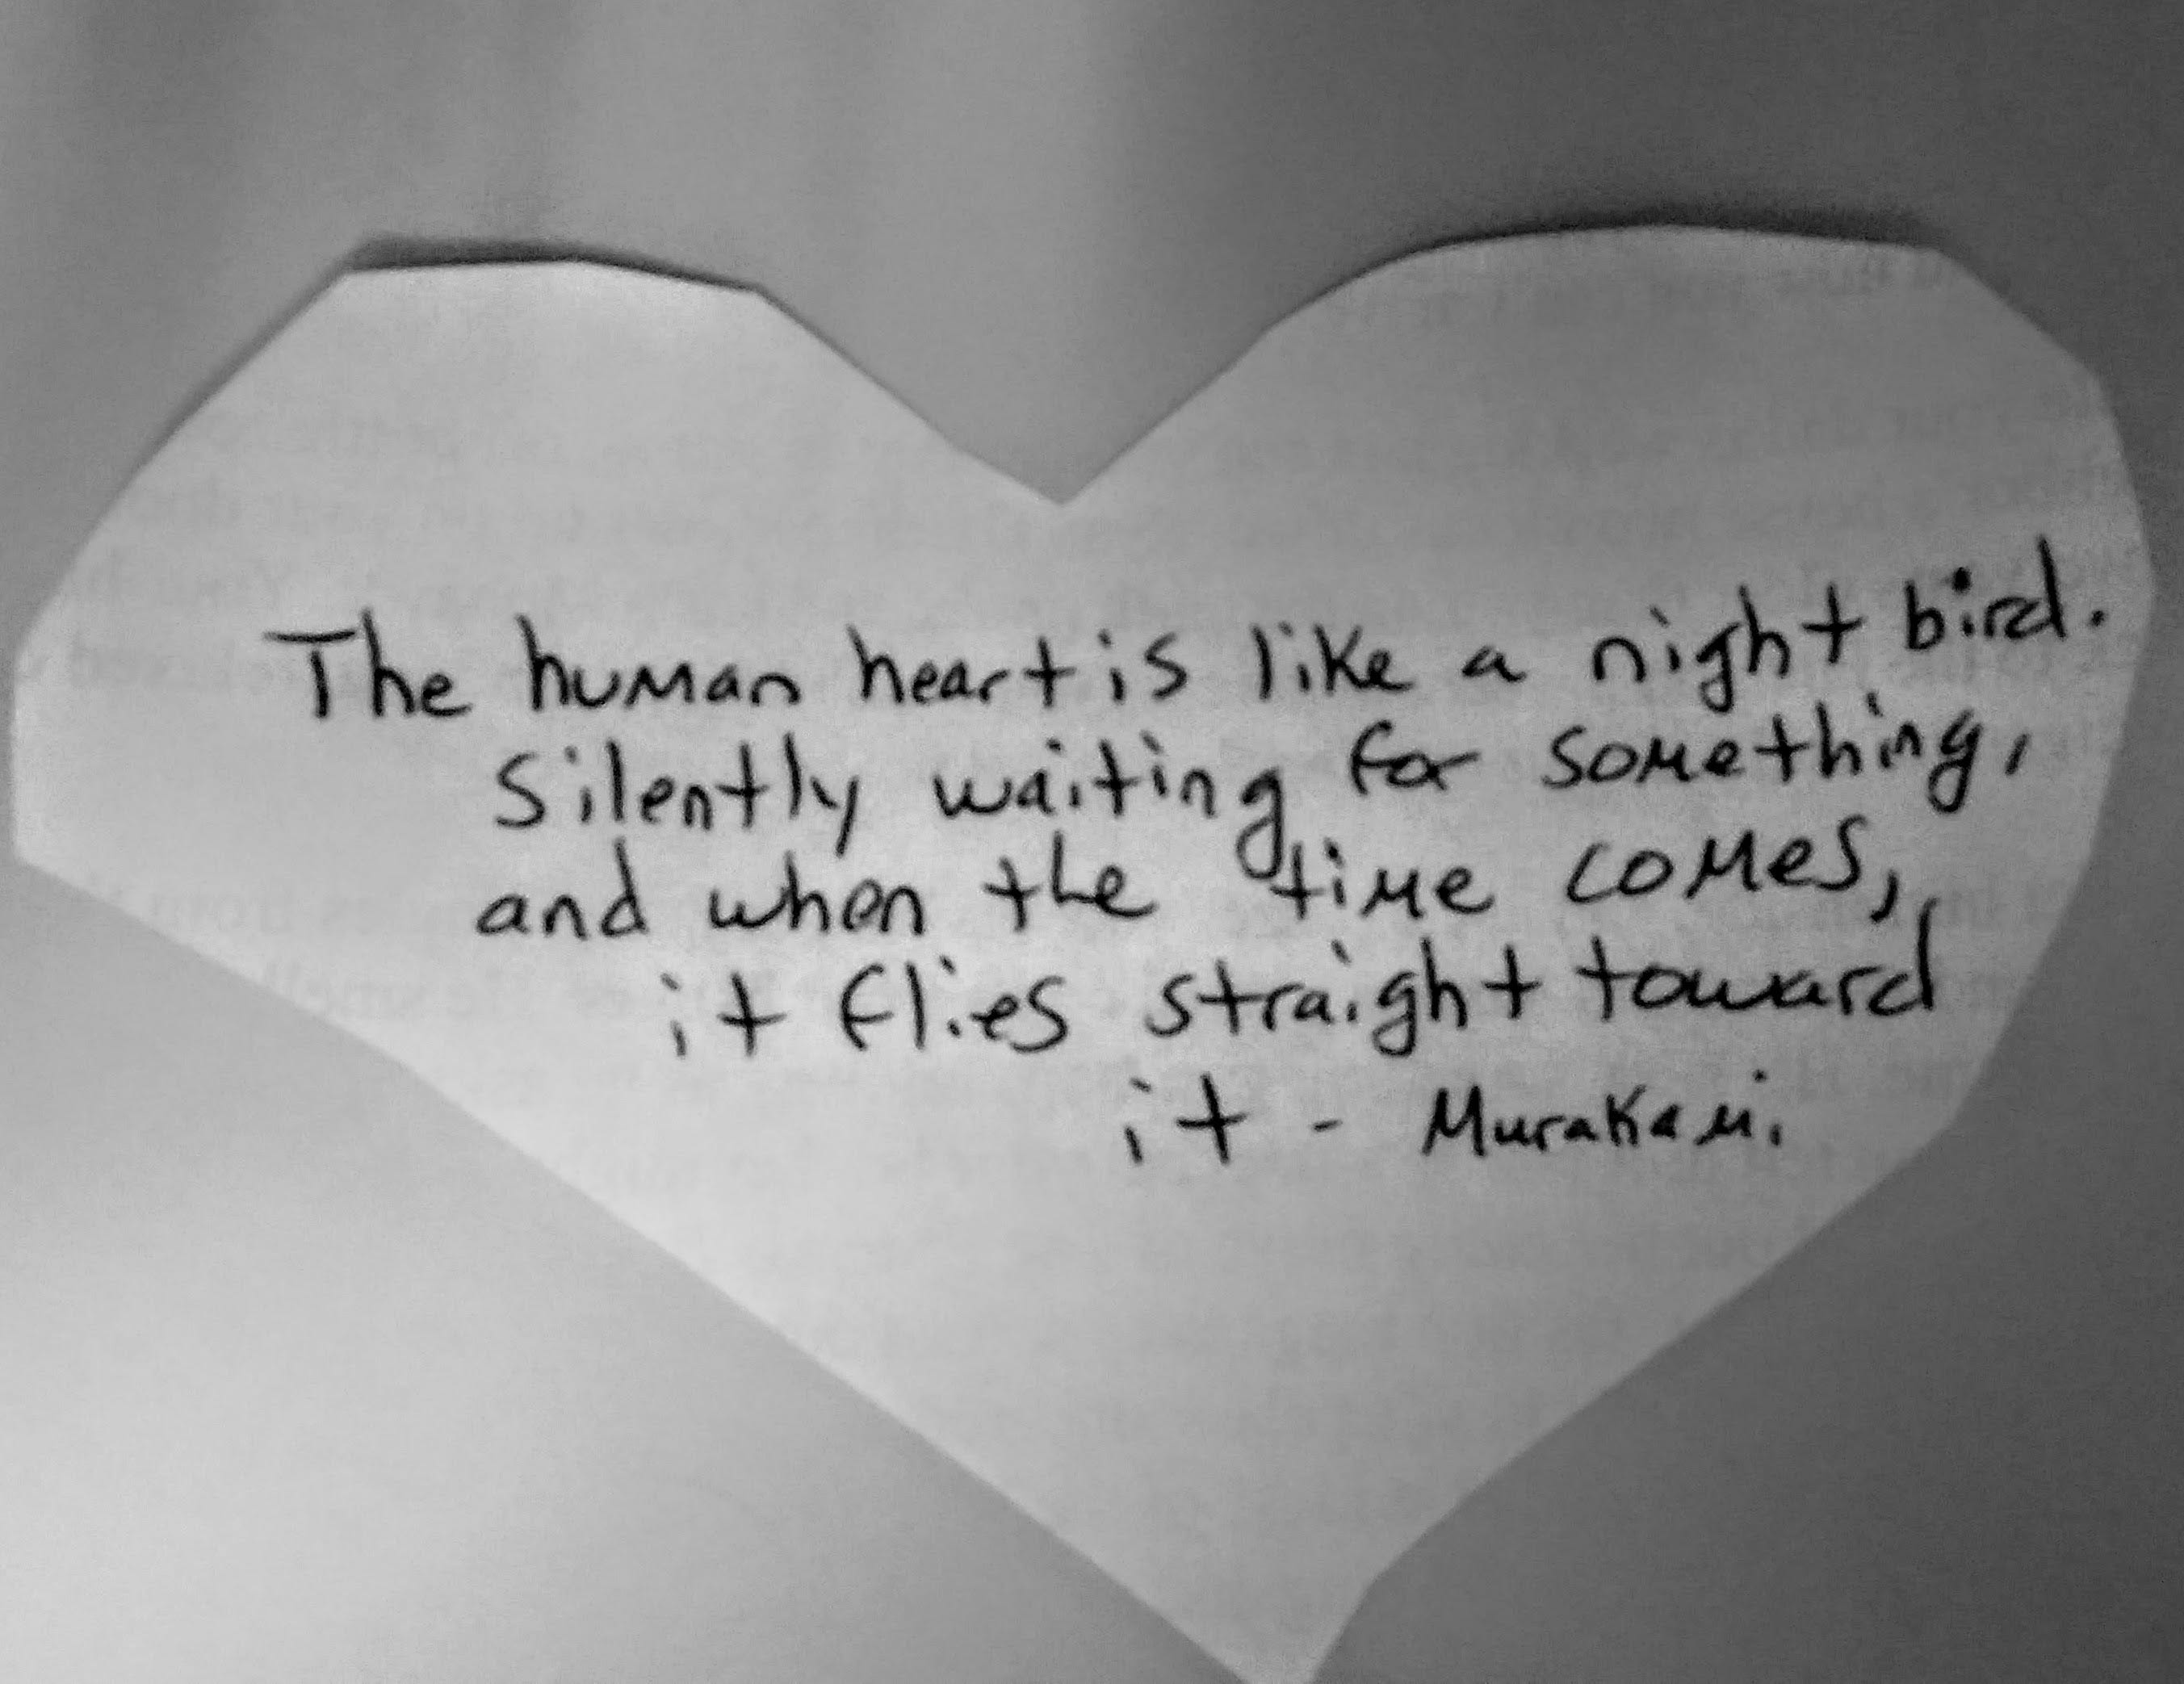 The human heart is like a night bird.
Silently waiting for something,
and when the time comes,
it flies straight toward
it - Murakami.